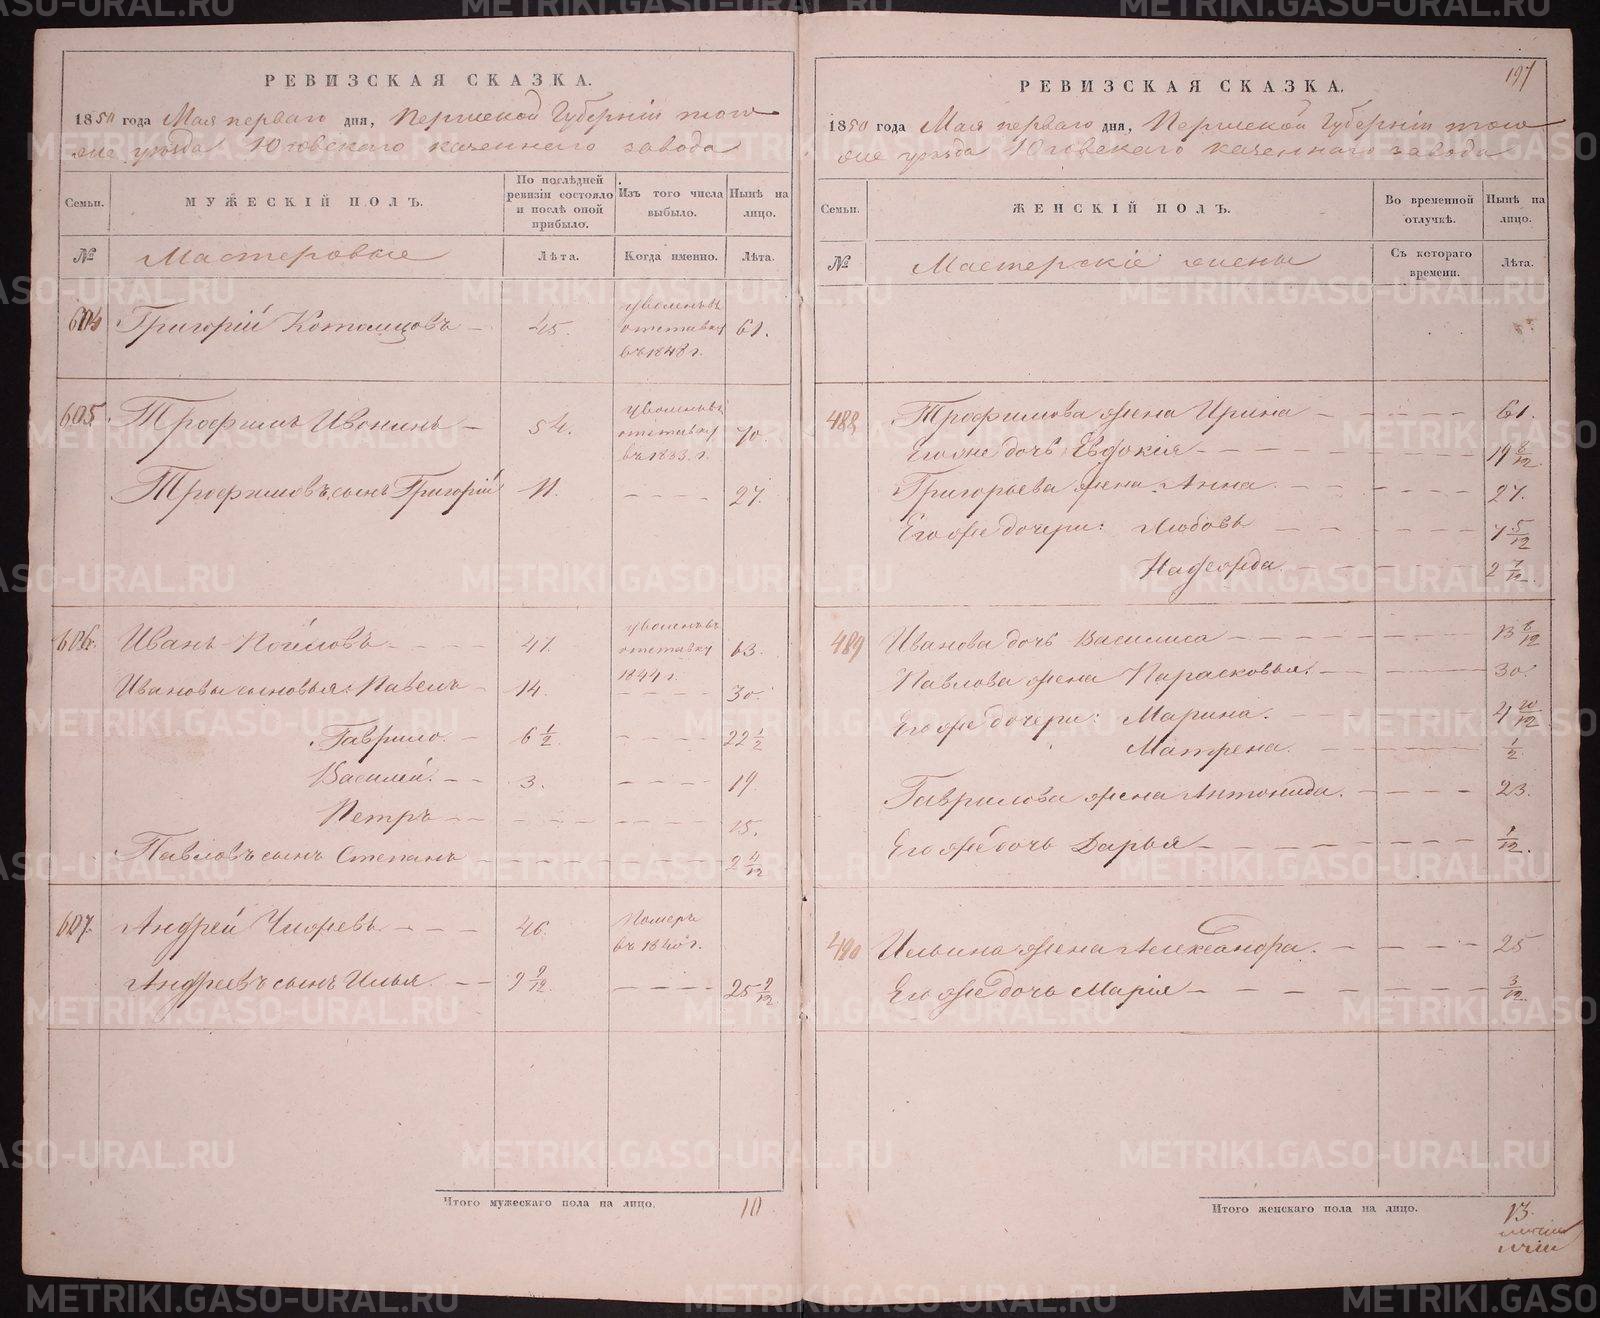 РЕВИЗСКАЯ СКАЗКА.
1850 года Мая перваго дня, Пермской Губерніи того
же уѣзда Юговскаго казеннаго завода
Семьи.
МУЖЕСКІЙ ПОЛЪ.
По послѣдней ревизіи состояло и послѣ оной прибыло.
Изъ того числа выбыло.
Нынѣ на лицо.
№
Мастеровые
Лѣта.
Когда именно.
Лѣта.
604 Григорій Котомцовъ 45. уволенъ въ отставку въ 1848 г. 61.
605 Трофимъ Ивонинъ 54. уволенъ въ отставку въ 1833. г. 70.
Трофимовъ сынъ Григорій 11. 27.
606. Иванъ 47. уволенъ въ отставку 1844 г. 63.
Ивановы сыновья: Павелъ 14. 30.
Гаврило. 6 1/2 22 1/2
Василій. 3. 19
Петръ 15.
Павловъ сынъ Степанъ 2
607. Андрей 46. Померъ въ 1840 г.
Андреевъ сынъ Илья 9 9/12. 25 9/12.
Итого мужескаго пола на лицо. 10
197
РЕВИЗСКАЯ СКАЗКА.
1850 года Мая перваго дня, Пермской Губерніи того
же уѣзда Юговскаго казеннаго завода
Семьи.
ЖЕНСКІЙ ПОЛЪ.
Во временной отлучкѣ.
Нынѣ на лицо.
№
Мастерскіе жены
Съ котораго времени.
Лѣта.
488 Трофимова жена Ирина 61.
Его же дочь Евдокія 19 8/12.
Григорьева жена Анна 27.
Его же дочери: Любовь 7 5/12
Надежда 2 7/12.
489 Иванова дочь Василиса 13 8/12
Павлова жена Парасковья. 30.
Его же дочери: Марина. 4 10/12
Матрена. 1/2
Гаврилова жена Антонида. 23.
Его же дочь Дарья 1/12.
490 Ильина жена Александра. 25
Его же дочь Марія 3/12
Итого женскаго пола на лицо. 13.
METRIKI.GASO-URAL.RU